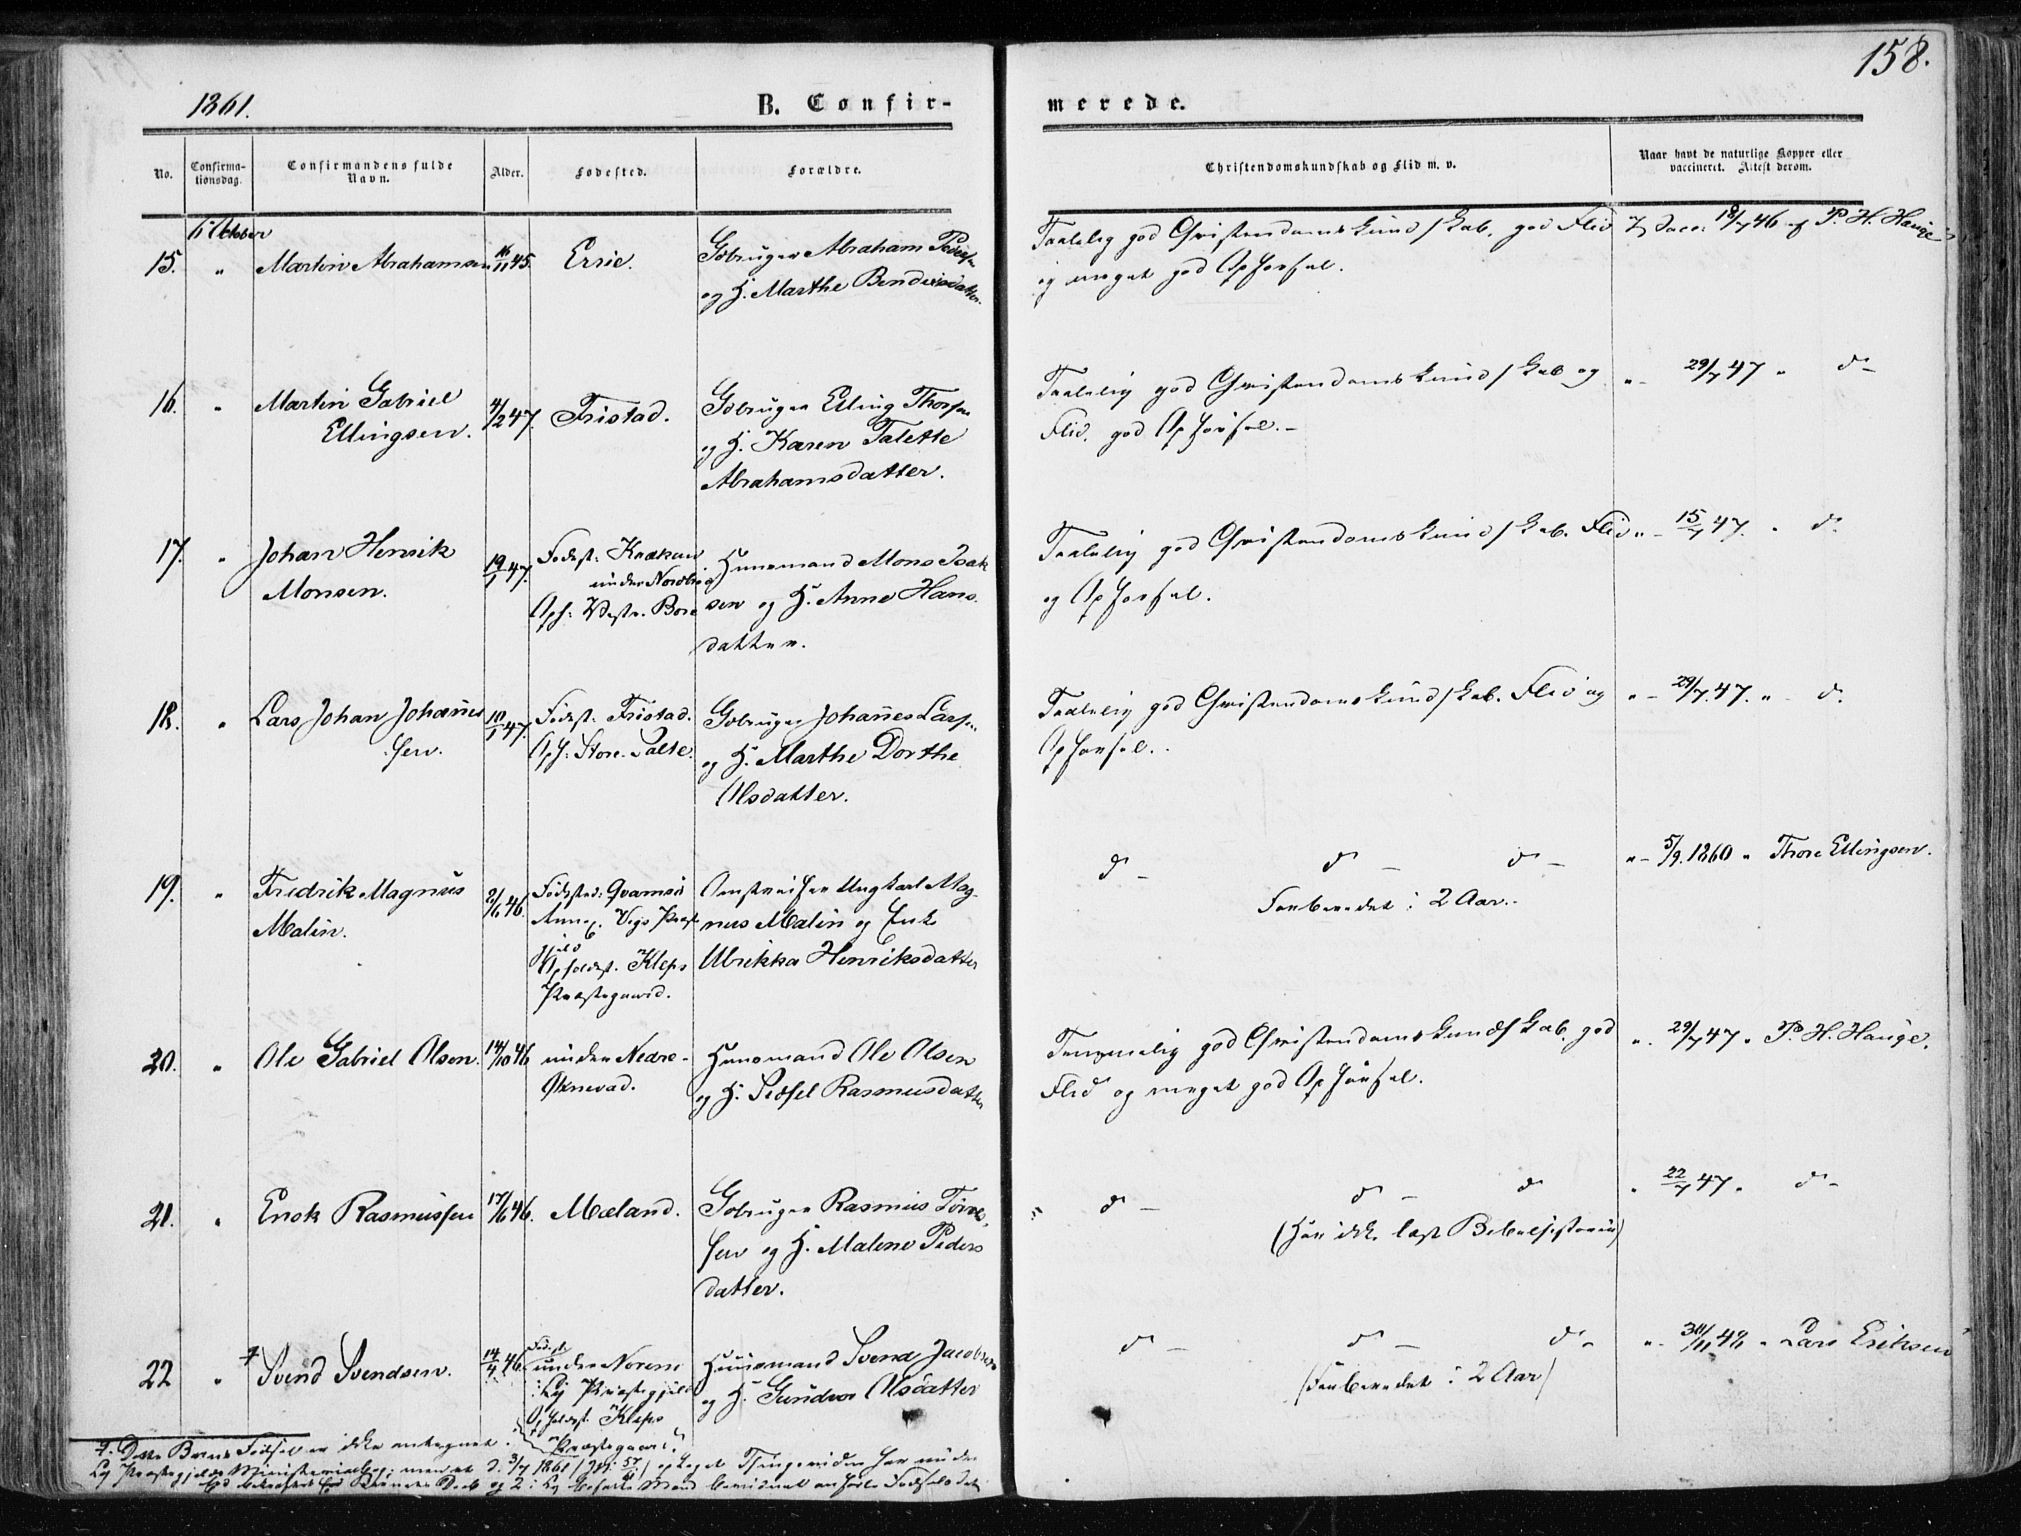 158.
1861.
B. Confir-
merede.
No.
Confirma-
tionsdag.
Confirmandens fulde
Navn.
Alder.
Fødested.
Forældre.
Christendomskundskab og Flid m. v.
Naar havt de naturlige Kopper eller
vaccineret. Attest derom.
October
15. " Martin Abrahamsen 16/11 45. Gbruger Abraham Peders.
og H. Marthe Bendixsdatter.
Taalelig god Christendomskundskab, god Flid
og meget god Opførsel.
Vacc. 18/7 46 af P. H. Hauge
16. " Martin Gabriel
Ellingsen. 4/2 47. Tristad. Gbruger Elling Thorsen
og H. Karen Talette
Abrahamsdatter.
Taalelig god Christendomskundskab og
Flid. god Opførsel. -
" - 29/7 47 " do -
17. " Johan Henrik
Monsen. 19/1 47. Fødest: Krækene
under Nordbraud
Oph: Vestr. Bore
Huusmand Mons Isak
sen og H. Anne Hans
datter.
Taalelig god Christendomskundskab. Flid
og Opførsel.
" - 15/7 47. " do
18. " Lars Johan Johannes
sen. 10/1 47. Fødest: Tristad.
Oph: Store Salte.
Gbruger Johannes Lars.
og H. Marthe Dorthe
Olsdatter.
Taalelig god Christendomskundskab. Flid og
Opførsel.
" - 29/7. 47. " - do.
19. " Fredrik Magnus
Malin. 2/6 46. Fødested: Qvamsø
Annex. Præste
gjeld
Opholdst. Kleps
Præstegaard.
Ungkarl Mag-
nus Malin og Enke
Ulrikka Henriksdatter
do - do - do -
Forberedet i 2 Aar.
" - 5/9. 1860 " Thore Ellingsen.
20. " Ole Gabriel Olsen. 14/10 46 under Nedre-
Øxnevad.
Huusmand Ole Olsen
og H. Sidsel Rasmusdatter
Temmelig god Christendomskundskab. god
Flid og meget god Opførsel.
" 29/7 47 " P. H. Hauge.
21. " Enok Rasmussen 17/6 46. Mæland. Gbruger Rasmus Tørres
sen og H. Malene Peders
datter.
do - do - do
(Har ikke læst Bibelhistorie)
" 22/7 47 " do -
22 " Svend Svendsen. 14/4 46. Fødest.
under Norem
i Ly Præstegjeld
Opholdst. Kleps
Præstegaard.
Huusmand Svend Jacobsen
og H. Gundvor Olsdatter
do - do - do -
(Forberedet i 2 Aar)
" - 30/11 48 " Lars Eriksen
Dette Barns Fødsel er ikke antegnet i
Ly Præstegjelds Ministerialbog; men et d. 3/7 1861 optaget Tingsvidne har under